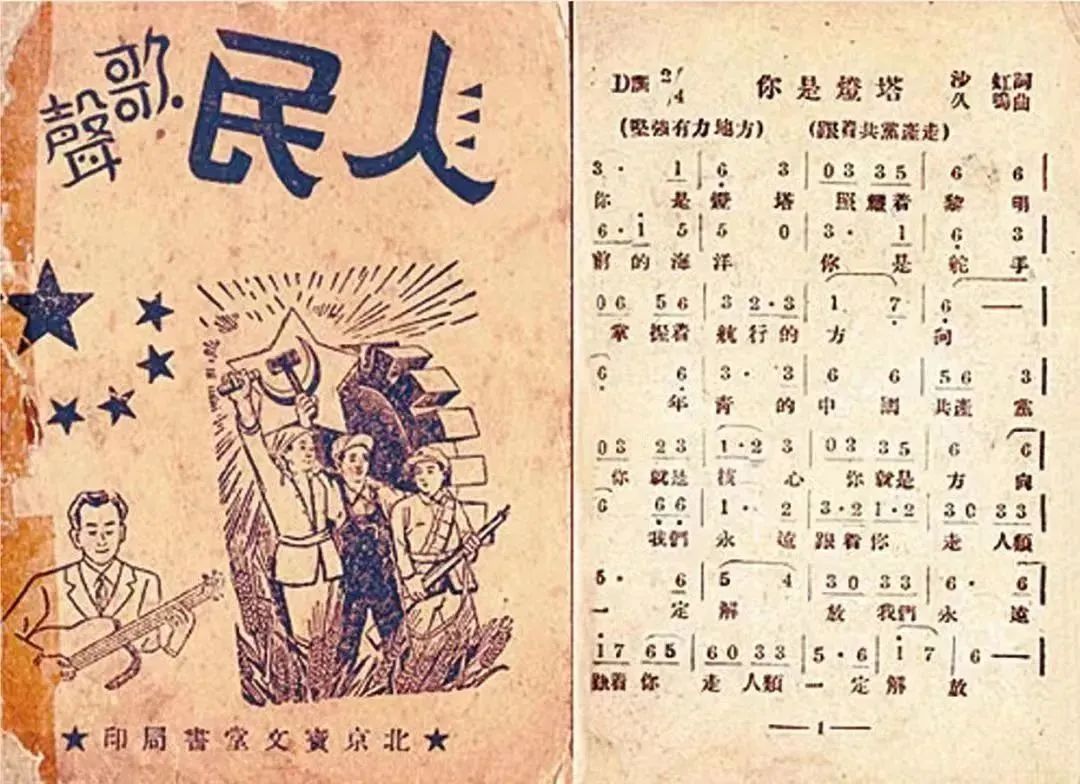 人民
歌聲
★北京寶文堂書局印★
D調 2/4 你是燈塔 沙虹詞
久鳴曲
(堅強有力地方) (跟着共黨產走)
3· 1 | 6 3 | 03 35 | 6 6 |
你 是 燈 塔 照耀着 黎 明
6·i 5 | 5 0 | 3· 1 | 6 3 |
前 的 海 洋 你 是 舵 手
06 56 | 3 2·3 | 1 7 | 6 — |
掌 握着 航 行 的 方 向
6 6 | 3· 3 | 6 6 | 56 3 |
年 青 的 中 國 共產 黨
03 23 | 1·2 3 | 03 35 | 6 6 |
你 就是 核 心 你 就是 方 向
6 66 | 1· 2 | 3·2 1·2 | 30 33 |
我們 永 遠 跟着你 走 人類
5· 6 | 5 4 | 30 33 | 6· 6 |
一 定 解 放 我們 永 遠
i7 65 | 60 33 | 5·6 | i 7 | 6 — |
跟着 你 走 人類 一 定 解 放
— 1 —